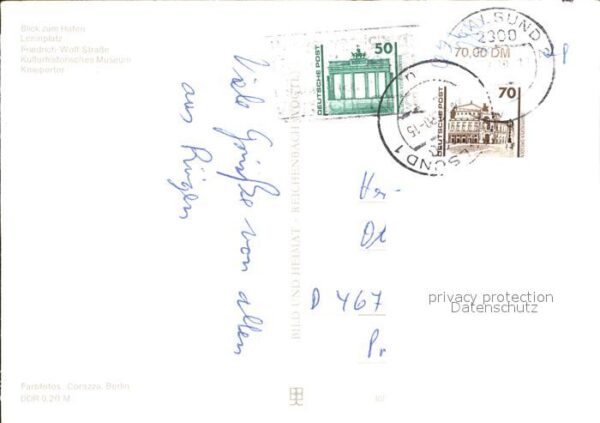 Blick zum Hafen
Leninplatz
Friedrich-Wolf-Straße
Kulturhistorisches Museum
Kniepertor
Viele Grüße von allen
aus Rügen
BILD UND HEIMAT · REICHENBACH (VOGTL)
DEUTSCHE POST
50
2300
70,00 DM
DEUTSCHE POST
70
ALSUND 2
LSUND 1
Her-
D 467
Pr
privacy protection
Datenschutz
Farbfotos: Corazza, Berlin
DDR 0,20 M